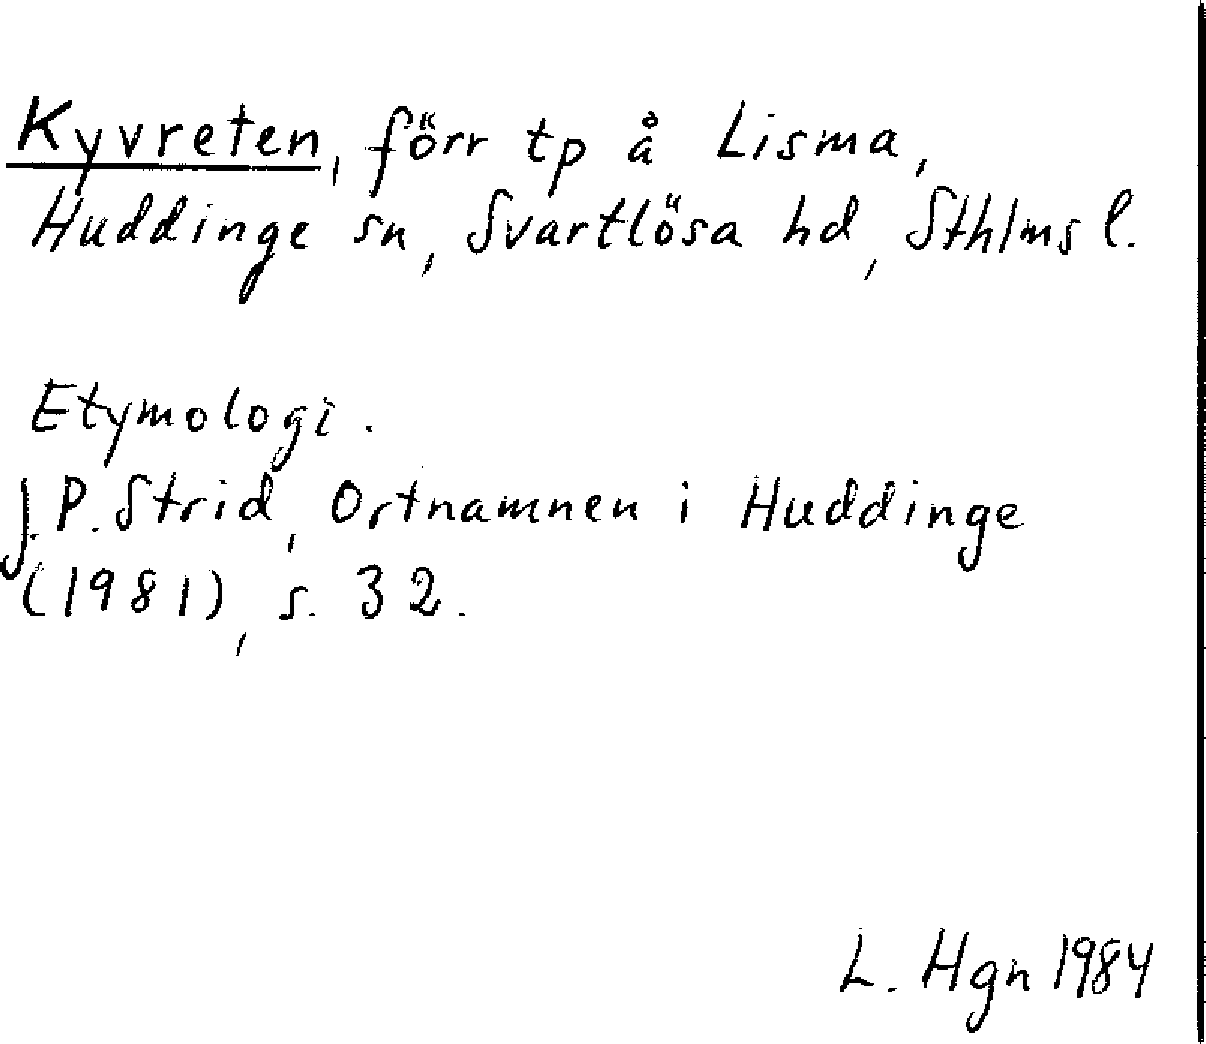 Kyvreten, förr tp å Lisma,
Huddinge sn, Svartlösa hd, Sthlms l.
Etymologi.
J.P. Strid, Ortnamnen i Huddinge
(1981), s. 32.
L. Hgn 1984